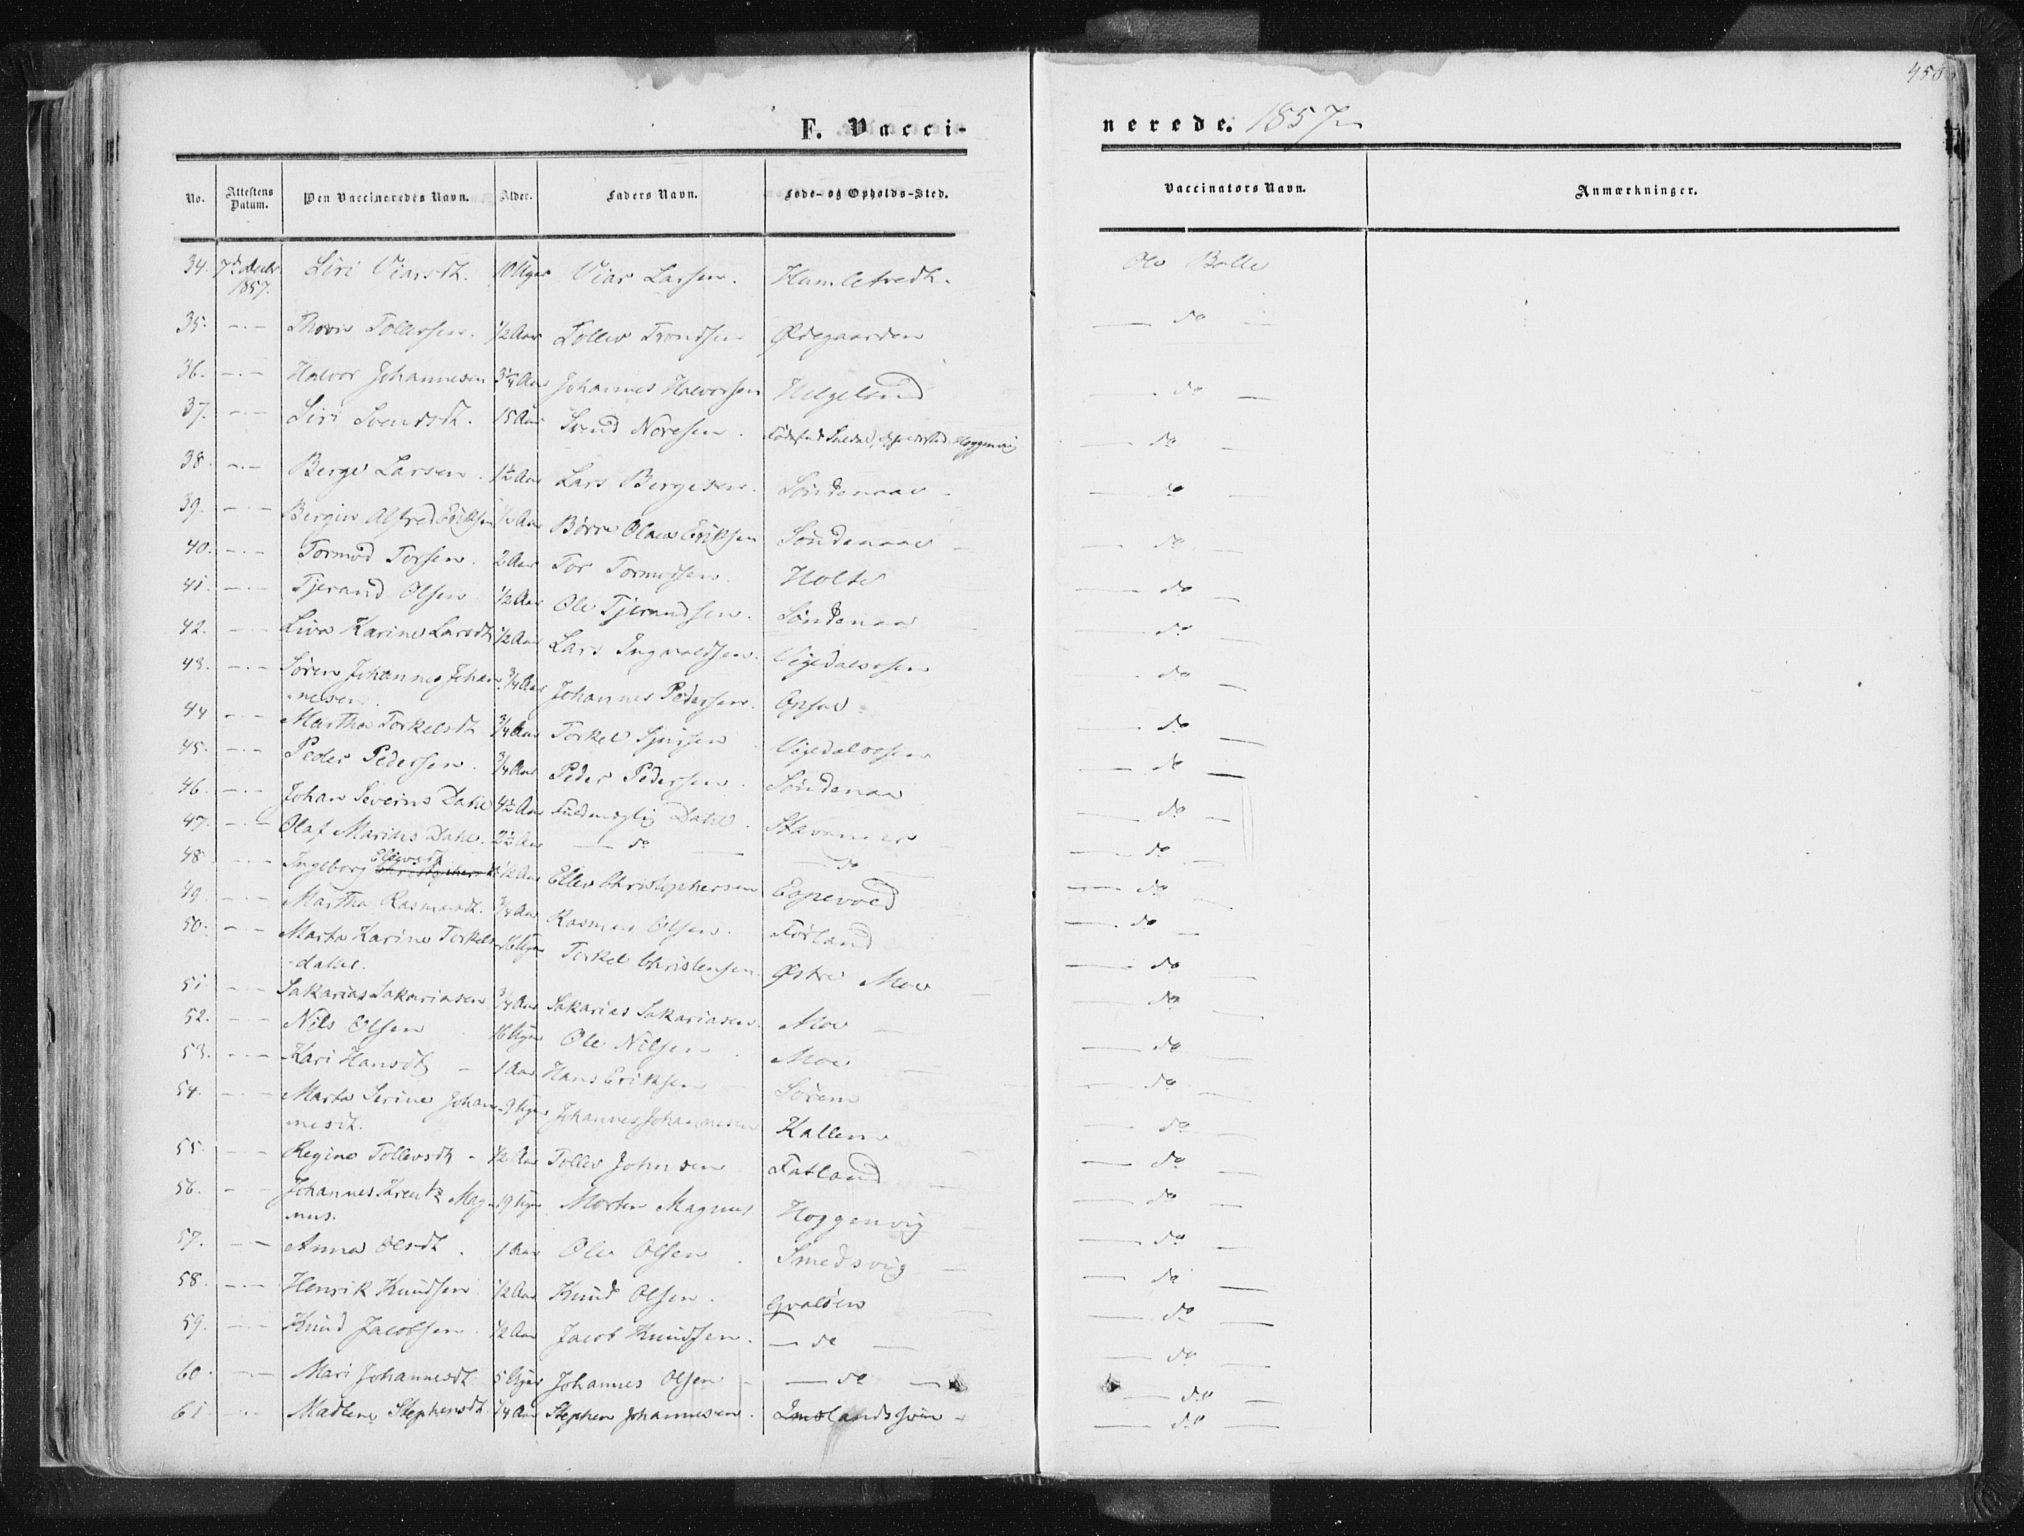 450
F. Vacci-
nerede. 1857
No. Attestens Datum. Den Vaccineredes Navn. Alder. Faders Navn. Føde- og Opholds-Sted. Vaccinators Navn. Anmærkninger.
34. 7de Decbr 1857. Siri Viarsdt. 10 Uger Viar Larsen. Humletvedt. Ole Bolle
35. -"- Tollefsen. 1/2 Aar Tollev Trondsen Ødegaarden do
36. -"- Halvor Johannesen 3 1/4 Aar Johannes Halvorsen Helgeland do
37. -"- Siri Svendsdt. 15 Aar Svend Noresen. Hoggenvig do
38. -"- Berge Larsen. 1 1/2 Aar Lars Bergesen. Søndenaae do
39. -"- Alfred Eriksen 1/2 Aar Børre Olaus Eriksen Søndenaae do
40. -"- Tormod Torsen. 2 Aar Tor Tormodsen. Holte do
41. -"- Tjerand Olsen 1/2 Aar Ole Tjerandsen. Søndenaa do
42. -"- Karine Larsdt 1/2 Aar Lars Ingvaldsen. Vigedalsosen do
43. -"- Søren Johannes Johan-
nesen. 3/4 Aar Johannes Pedersen. Opsal. do
44 -"- Martha Torkelsdt 3/4 Aar Torkel Vigedalsosen do
45. -"- Peder Pedersen. 3/4 Aar Peder Pedersen. Søndenaa do
46. -"- Johan Severin Dahl 4 1/2 Aar Fuldmægtig Dahl. Stavanger do
47. -"- Olaf Marius Dahl. 2 1/2 Aar do do do
48 -"- Ingeborg Ellevsdt 1/2 Aar Ellev Christophersen do
49. -"- Martha Rasmusdt. 3/4 Aar Rasmus Olsen. Førland do
50. -"- Marta Karine Torkels-
datter. 16 Uger Torkel Christensen. Østre Moe do
51 -"- Sakarias Sakariasen 3/4 Aar Sakarias Sakariasen. Moe do
52. -"- Nils Olsen 16 Uger Ole Nilsen Moe do
53. -"- Kari Hansdt 1 Aar Hans Eriksen Sørem do
54. -"- Marta Serine Johan-
nesdt. 9 Uger Johannes Johannesen Kallem do
55. -"- Regine Tollevsdt 1/2 Aar Tollev Johnsen Fatland do
56. -"- Johannes Kreutz Mag-
nus. 19 Uger Morten Magnus Hoggenvig do
57. -"- Anna Olsdt. 1 Aar Ole Olsen Smedsvig do
58. -"- Henrik Knudsen 1/2 Aar Knud Olsen. Qvaløen do
59. -"- Knud Jacobsen. 1/2 Aar Jacob Knudsen. do do
60. -"- Mari Johannesdt 5 Uger Johannes Olsen do do
61 -"- Madlene Stephensdt. 1/4 Aar Stephen Johannesen. Imslandssøen do